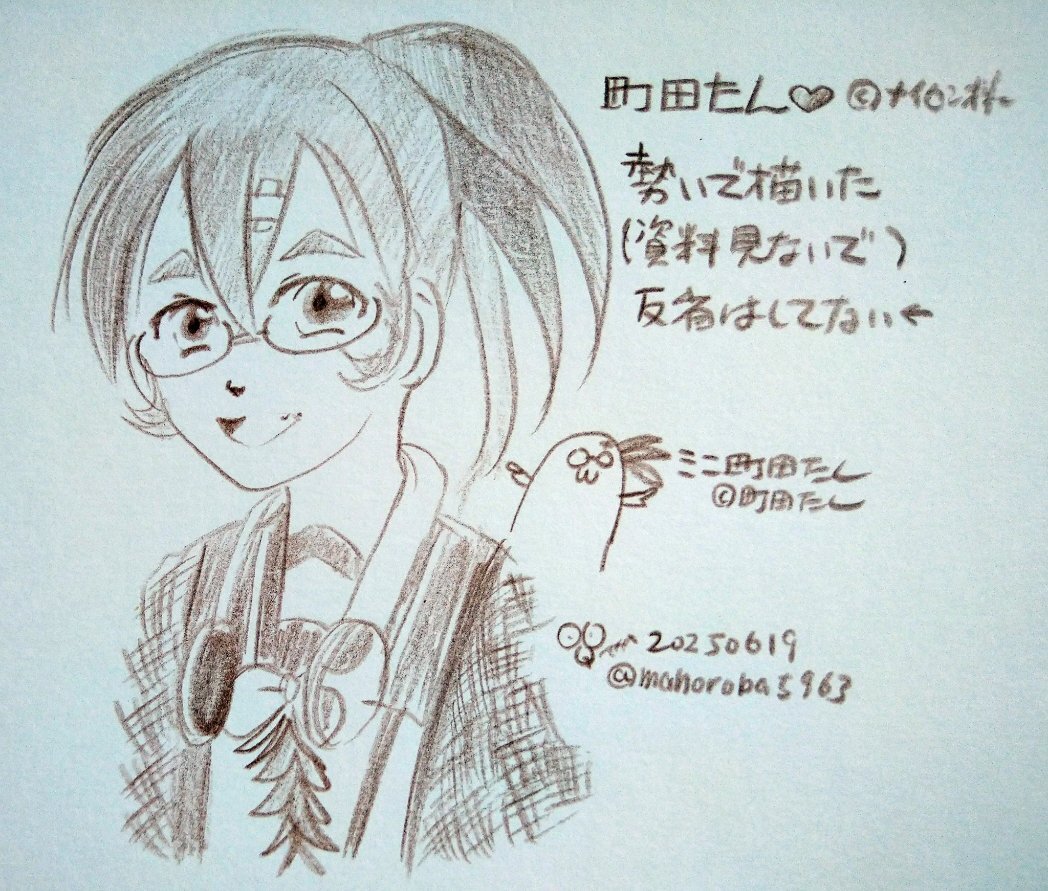 町田たん♡ ©ナイロン
勢いで描いた
(資料見ないで)
反省はしてない←
ミニ町田たん
©町田たん
20250619
@mahoroba5963